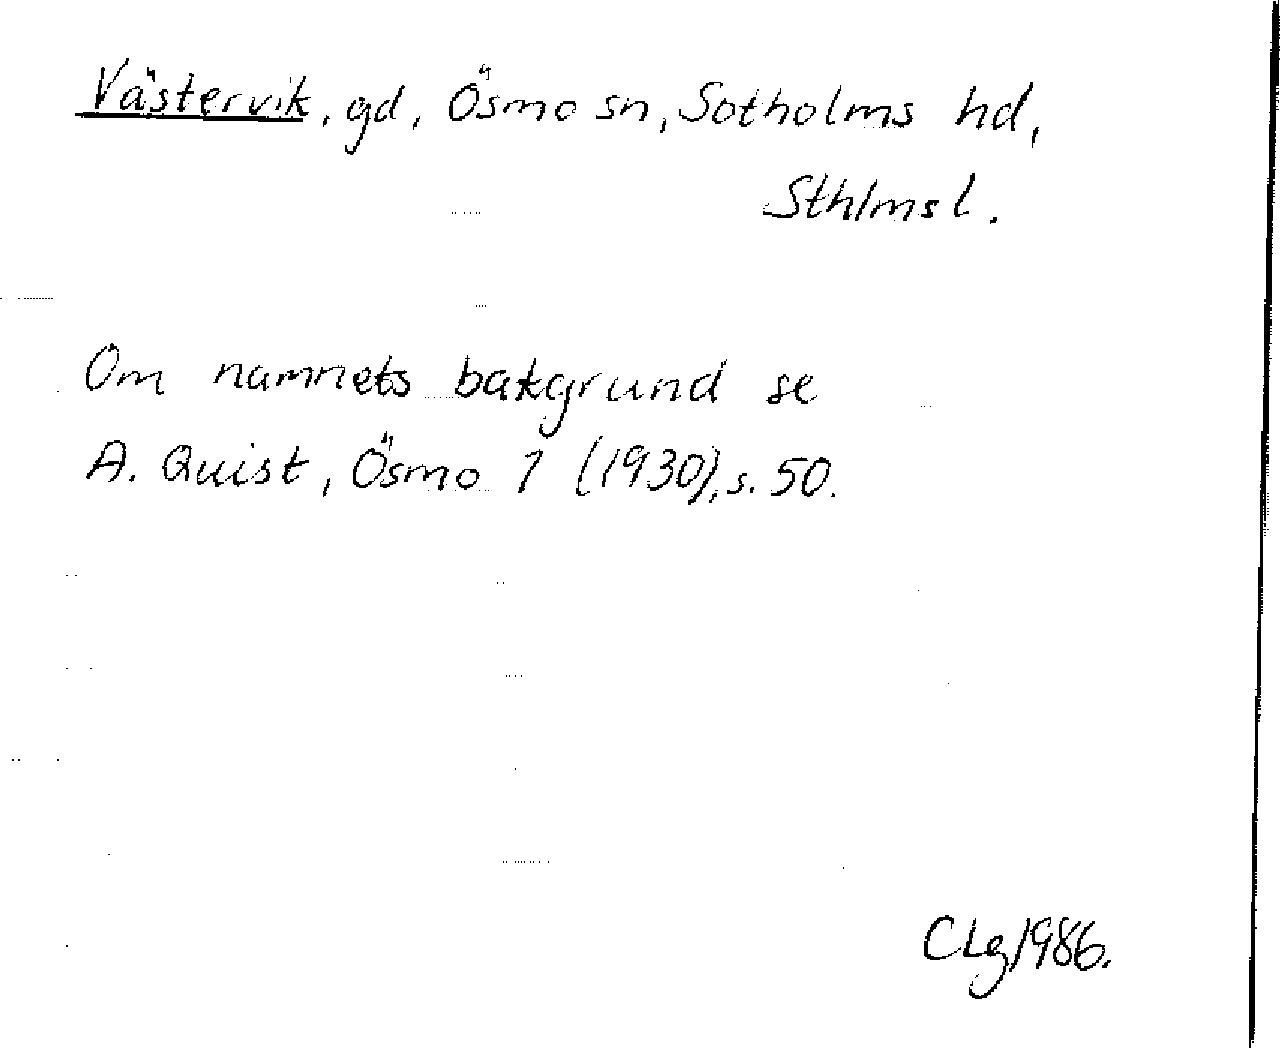 Västervik, gd, Ösmo sn, Sotholms hd,
Sthlms l.
Om namnets bakgrund se
A. Quist, Ösmo 1 (1930), s. 50.
CLg 1986.